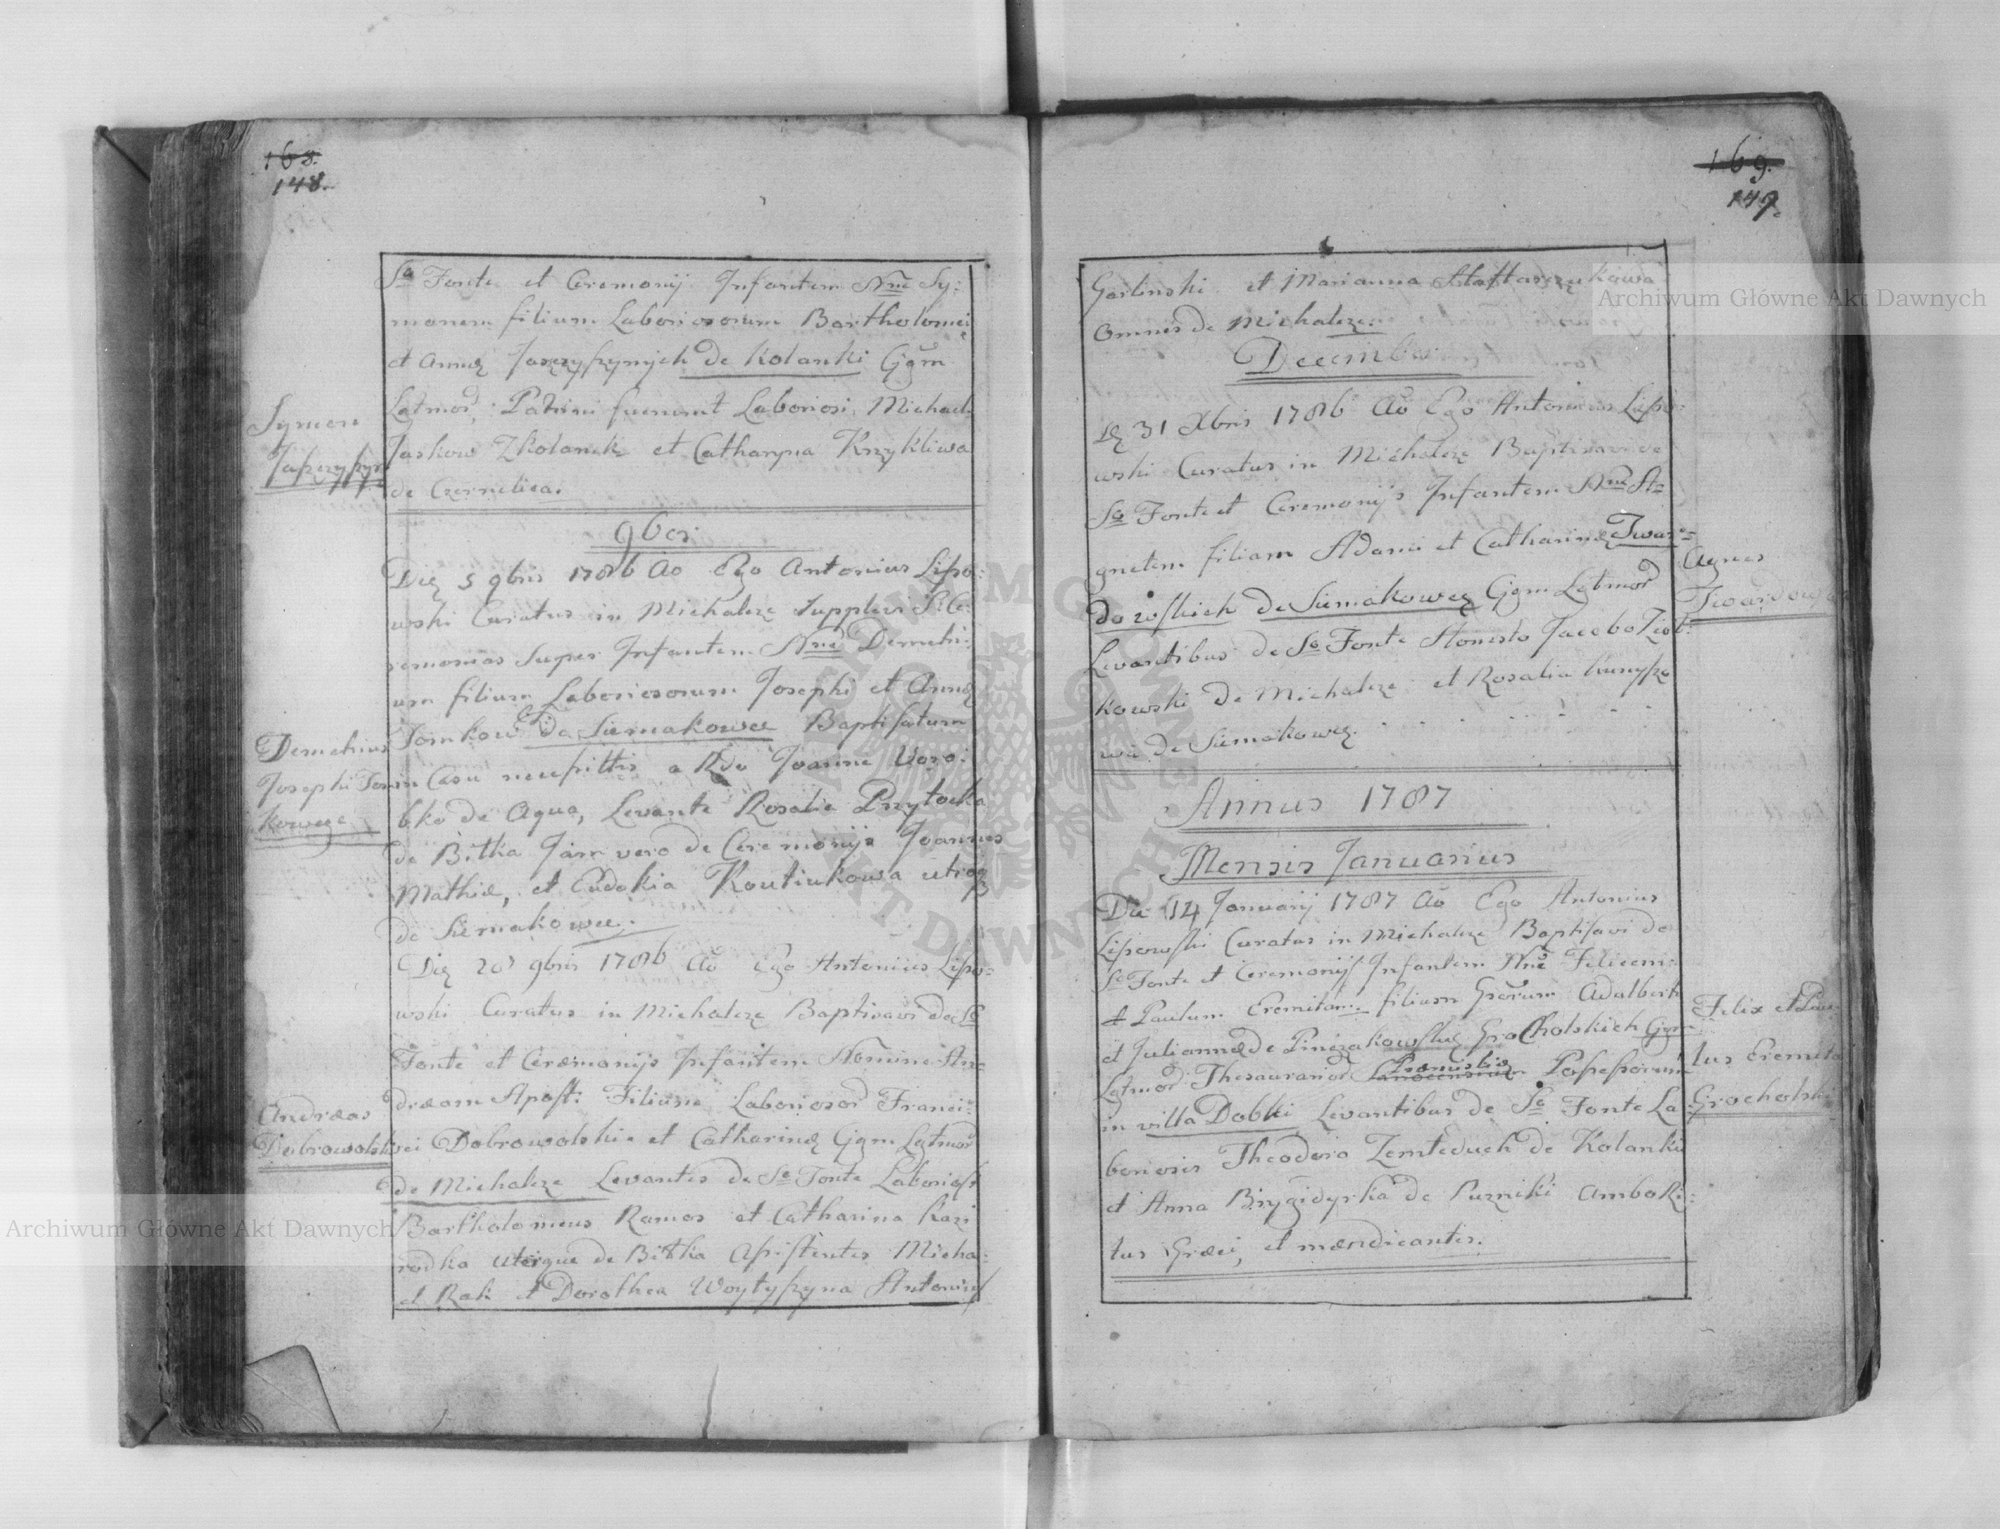 168.
148.
Sa Fonte et Ceremonij Infantem Nne Sy:
monem filium Laboriosorum Bartholomei
et Annæ Jaszczyszynych de Kolanki Ggm
Lgtmor, Patrini fuerunt Laboriosi Michael
Jaskow Zkolanek et Catharyna Krzykliwa
de Czernelica.
Symon
Jaszczyszyn
9bris
Die 5 9bris 1786 Ao Ego Antonius Lipo:
wski Curatus in Michalcze Supplevi S. Ce:
remonias Super Infantem Nne Demetri:
um filium Laboriosorum Josephi et Annæ
Tomkow de Siemakowce Baptisatum
in Casu necessittis a Rdo Joanne Woro:
bko de Aqua, Levante Rosalia Przytocka
de Bitka Jam vero de Ceremonijs Joannes
Mathiæ, et Eudokia Koutiukowa utrq
de Siemakowce.
Demetrius
Josephi Tom
kowcze
Die 20 9bris 1786 Ao Ego Antonius Lipo=
wski Curatus in Michalcze Baptisavi de So
Fonte et Ceræmonijs Infantem Nomine An:
dræam Apost: Filium Laboriosor Franci:
sci Dobrowolski et Catharinæ Ggm Lgtmor
de Michalcze Levantes de So Fonte Laborios
Bartholomeus Ramos et Catharina Kazi
rodka uterque de Bitka Assistentes Micha:
el Rak et Dorothea Woytyszyna Antonius
Andræas
Dobrowolski
169.
149.
Garlinski et Marianna
omnes de Michalcze.
December
Die 31 Xbris 1786 Ao Ego Antonius Lipo:
wski Curatus in Michalcze Baptisavi de
So Fonte et Ceremonijs Infantem Nne A=
gnetem filiam Adami et Catharinæ Twar=
dowskich de Siemakowce Ggm Lgtmor
Levantibus de So Fonte Honesto Jacobo Ziot:
kowski de Michalcze et Rosalia Kunysze
wa de Siemakowce.
Agnes
Twardowska
Annus 1787
Mensis Januarius
Die 14 Januarij 1787 Ao Ego Antonius
Lipowski Curatus in Michalcze Baptisavi de
So Fonte et Ceremonijs Infantem Nne Felicem
et Paulum Eremitam filium Gsorum Adalberti
et Juliannæ de Pinczakowskie Grocholskich Ggm
Lgtmor Thesaurarior
in villa Dobki Levantibus de So Fonte La
boriosis Theodoro Zemteduch de Kolanki
et Anna Brygidyrka de Puzniki Ambo Ri:
tus Græci, et mendicantes.
Felix et Pau
lus Eremita
Grocholski
Archiwum Główne Akt Dawnych
Archiwum Główne Akt Dawnych
ARCHIWUM GŁÓWNE AKT DAWNYCH